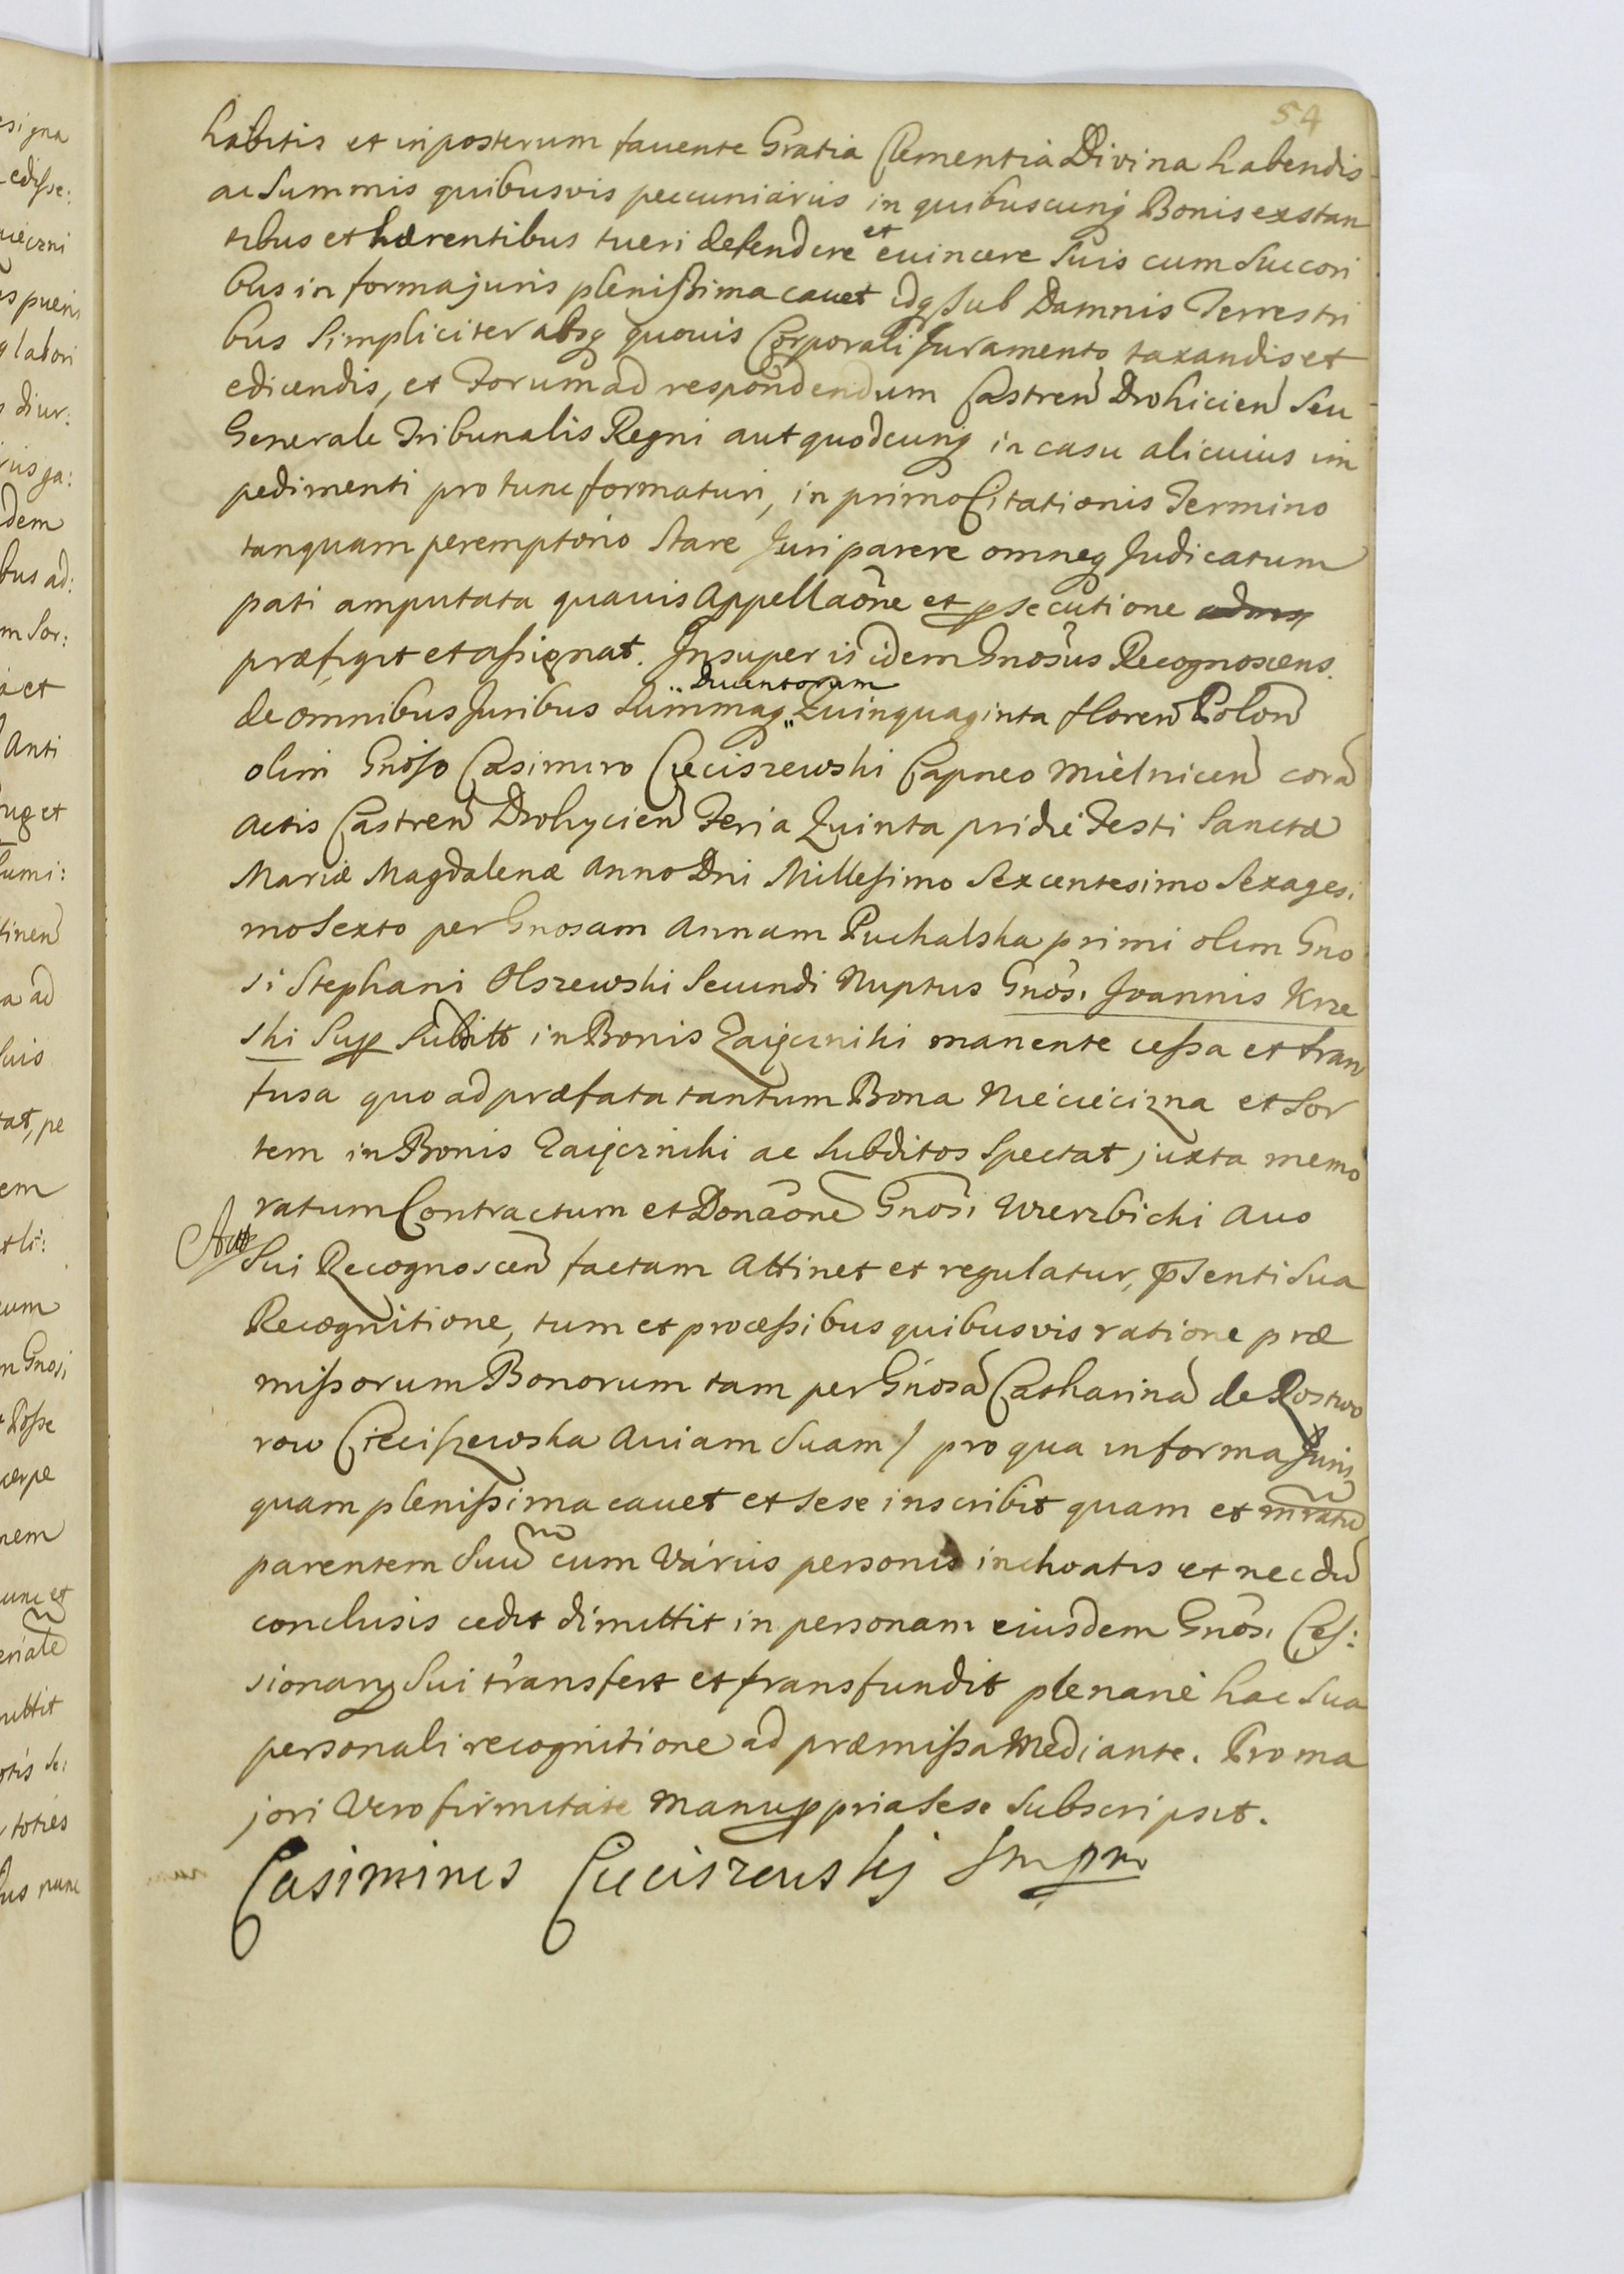 54
habitis et in posterum favente Gratia Clementia Divina habendis
ac Summis quibusvis pecuniariis in quibuscunq Bonis exstan
tibus et hærentibus tueri defendere et evincere Suis cum Succori
bus in forma juris plenissima cavet idq sub Damnis Terrestri
bus Simpliciter absq quovis Corporali Juramento taxandis et
edicendis, et Forum ad respondendum Castren Drohicien Seu
Generale Tribunalis Regni aut quodcunq in casu alicuius im
pedimenti pro tunc formaturi, in primo Citationis Termino
tanquam peremptorio Stare Juri parere omneq Judicatum
pati amputata quavis Appellaone et psecutione
præfigit et assignat. Insuper is idem Gnosus Recognoscens
de omnibus Juribus Summaq Ducentorum Quinquaginta floren Polon
olim Gnoso Casimiro Cieciszewski Capneo Mielnicen cora
Actis Castren Drohycien Feria Quinta pridie Festi Sanctæ
Mariæ Magdalenæ Anno Dni Millesimo Sexcentesimo Sexagesi
mo Sexto per Gnosam Annam Puchalska primi olim Gno
si Stephani Olszewski Secundi Nuptus Gnosi Joannis Krze
ski Sup Subditt in Bonis Zajęczniki manente cessa et tran
fusa quo ad præfata tantum Bona Niecieczna et Sor
tem in Bonis Zajęczniki ac Subditos Spectat, juxta memo
ratum Contractum et Donaone Gnosi Wierzbicki Avo
Act
Sui Recognoscen factam Attinet et regulatur, psenti Sua
Recognitione, tum et processibus quibusvis ratione præ
missorum Bonorum tam per Gnosa Catharina de Rostwo
row Cieciszewska Aviam Suam / pro qua in forma Juris
quam plenissima cavet et sese inscribit quam et
parentem Suu cum Variis personis inchoatis et necdu
conclusis cedit dimittit in personam eiusdem Gnosi Ces:
sionarij Sui transfert et transfundit plenarie hac Sua
personali recognitione ad præmissa Mediante. Pro ma
jori Vero firmitate Manu ppria sese Subscripsit.
Casimirus Cieciszewskj Smpm